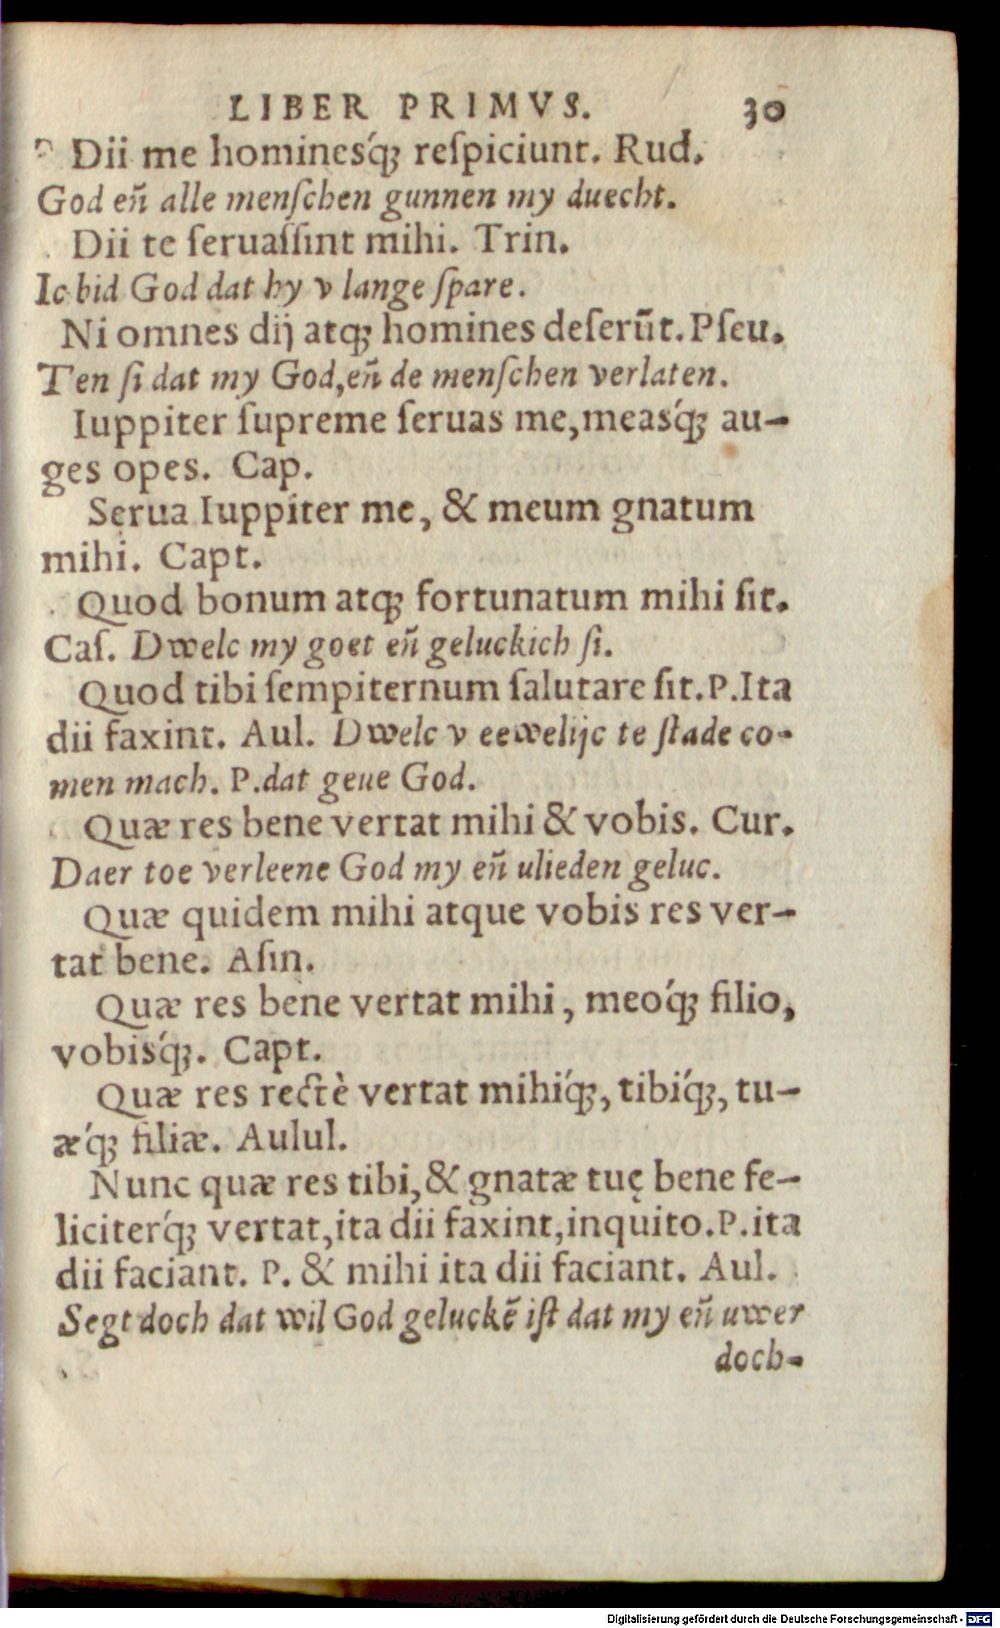 LIBER PRIMVS. 30
Dii me hominesq́; reſpiciunt. Rud.
God eñ alle menſchen gunnen my duecht.
Dii te ſeruaſſint mihi. Trin.
Ic bid God dat hy v lange ſpare.
Ni omnes dij atq; homines deſerũt. Pſeu.
Ten ſi dat my God, eñ de menſchen verlaten.
Iuppiter ſupreme ſeruas me, measq́; au-
ges opes. Cap.
Serua Iuppiter me, & meum gnatum
mihi. Capt.
Quod bonum atq; fortunatum mihi ſit.
Caſ. Dwelc my goet eñ geluckich ſi.
Quod tibi ſempiternum ſalutare ſit. P. Ita
dii faxint. Aul. Dwelc v eewelijc te ſtade co-
men mach. P. dat geue God.
Quæ res bene vertat mihi & vobis. Cur.
Daer toe verleene God my eñ ulieden geluc.
Quæ quidem mihi atque vobis res ver-
tat bene. Aſin.
Quæ res bene vertat mihi, meoq́; filio,
vobisq́;. Capt.
Quæ res rectè vertat mihiq́;, tibiq́;, tu-
æq́; filiæ. Aulul.
Nunc quæ res tibi, & gnatæ tuę bene fe-
liciterq́; vertat, ita dii faxint, inquito. P. ita
dii faciant. P. & mihi ita dii faciant. Aul.
Segt doch dat wil God geluckẽ iſt dat my eñ uwer
doch-
Digitalisierung gefördert durch die Deutsche Forschungsgemeinschaft - DFG